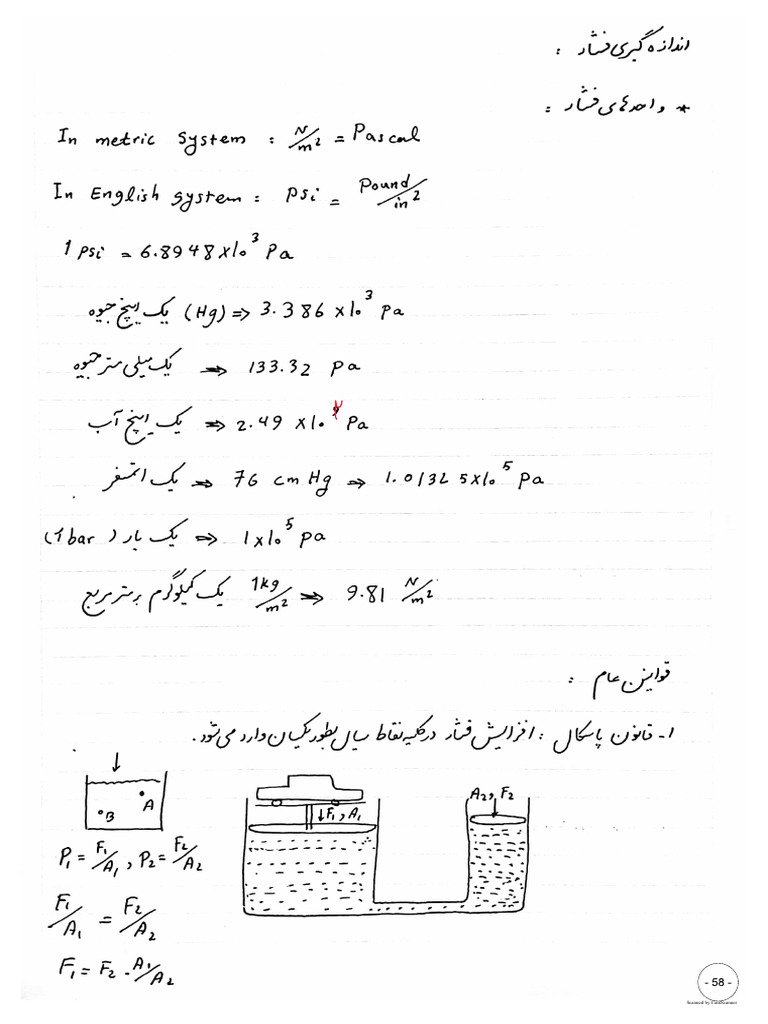 اندازه گیری فشار :
* واحدهای فشار :
In metric system : N/m² = Pascal
In English system : Psi = Pound/in²
1 Psi = 6.8948 x 10³ Pa
یک اینچ جیوه (Hg) ⇒ 3.386 x 10³ Pa
یک میلی متر جیوه ⇒ 133.32 Pa
یک اینچ آب ⇒ 2.49 x 10 Pa
یک اتمسفر ⇒ 76 cm Hg ⇒ 1.01325 x 10⁵ Pa
یک بار (1 bar) ⇒ 1 x 10⁵ Pa
یک کیلوگرم بر متر مربع 1kg/m² ⇒ 9.81 N/m²
قوانین عام :
۱- قانون پاسکال : افزایش فشار در کلیه نقاط سیال بطور یکسان وارد می شود.
A
B
F₁, A₁
A₂, F₂
P₁ = F₁/A₁ , P₂ = F₂/A₂
F₁/A₁ = F₂/A₂
F₁ = F₂ . A₁/A₂
- 58 -
Scanned by CamScanner